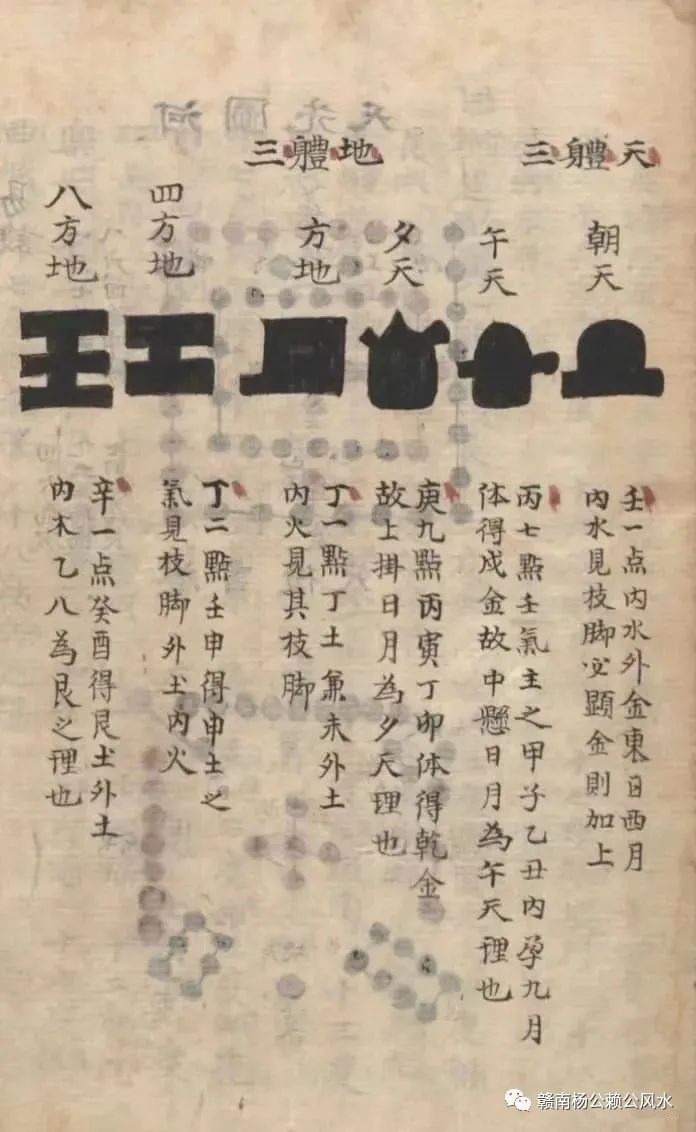 天體三
朝天
午天
夕天
地體三
方地
四方地
八方地
壬一点内水外金東日西月
内水見枝脚必顕金則加上
丙七點壬氣主之甲子乙丑内孕九月
体得成金故中懸日月為午天理也
庚九點丙寅丁卯体得乾金
故上掛日月為夕天理也
丁一點丁土兼未外土
内火見其枝脚
丁二點壬申得申土之
氣見枝脚外土内火
辛一点癸酉得艮土外土
内木乙八為艮之理也
天先圖河
赣南杨公赖公风水